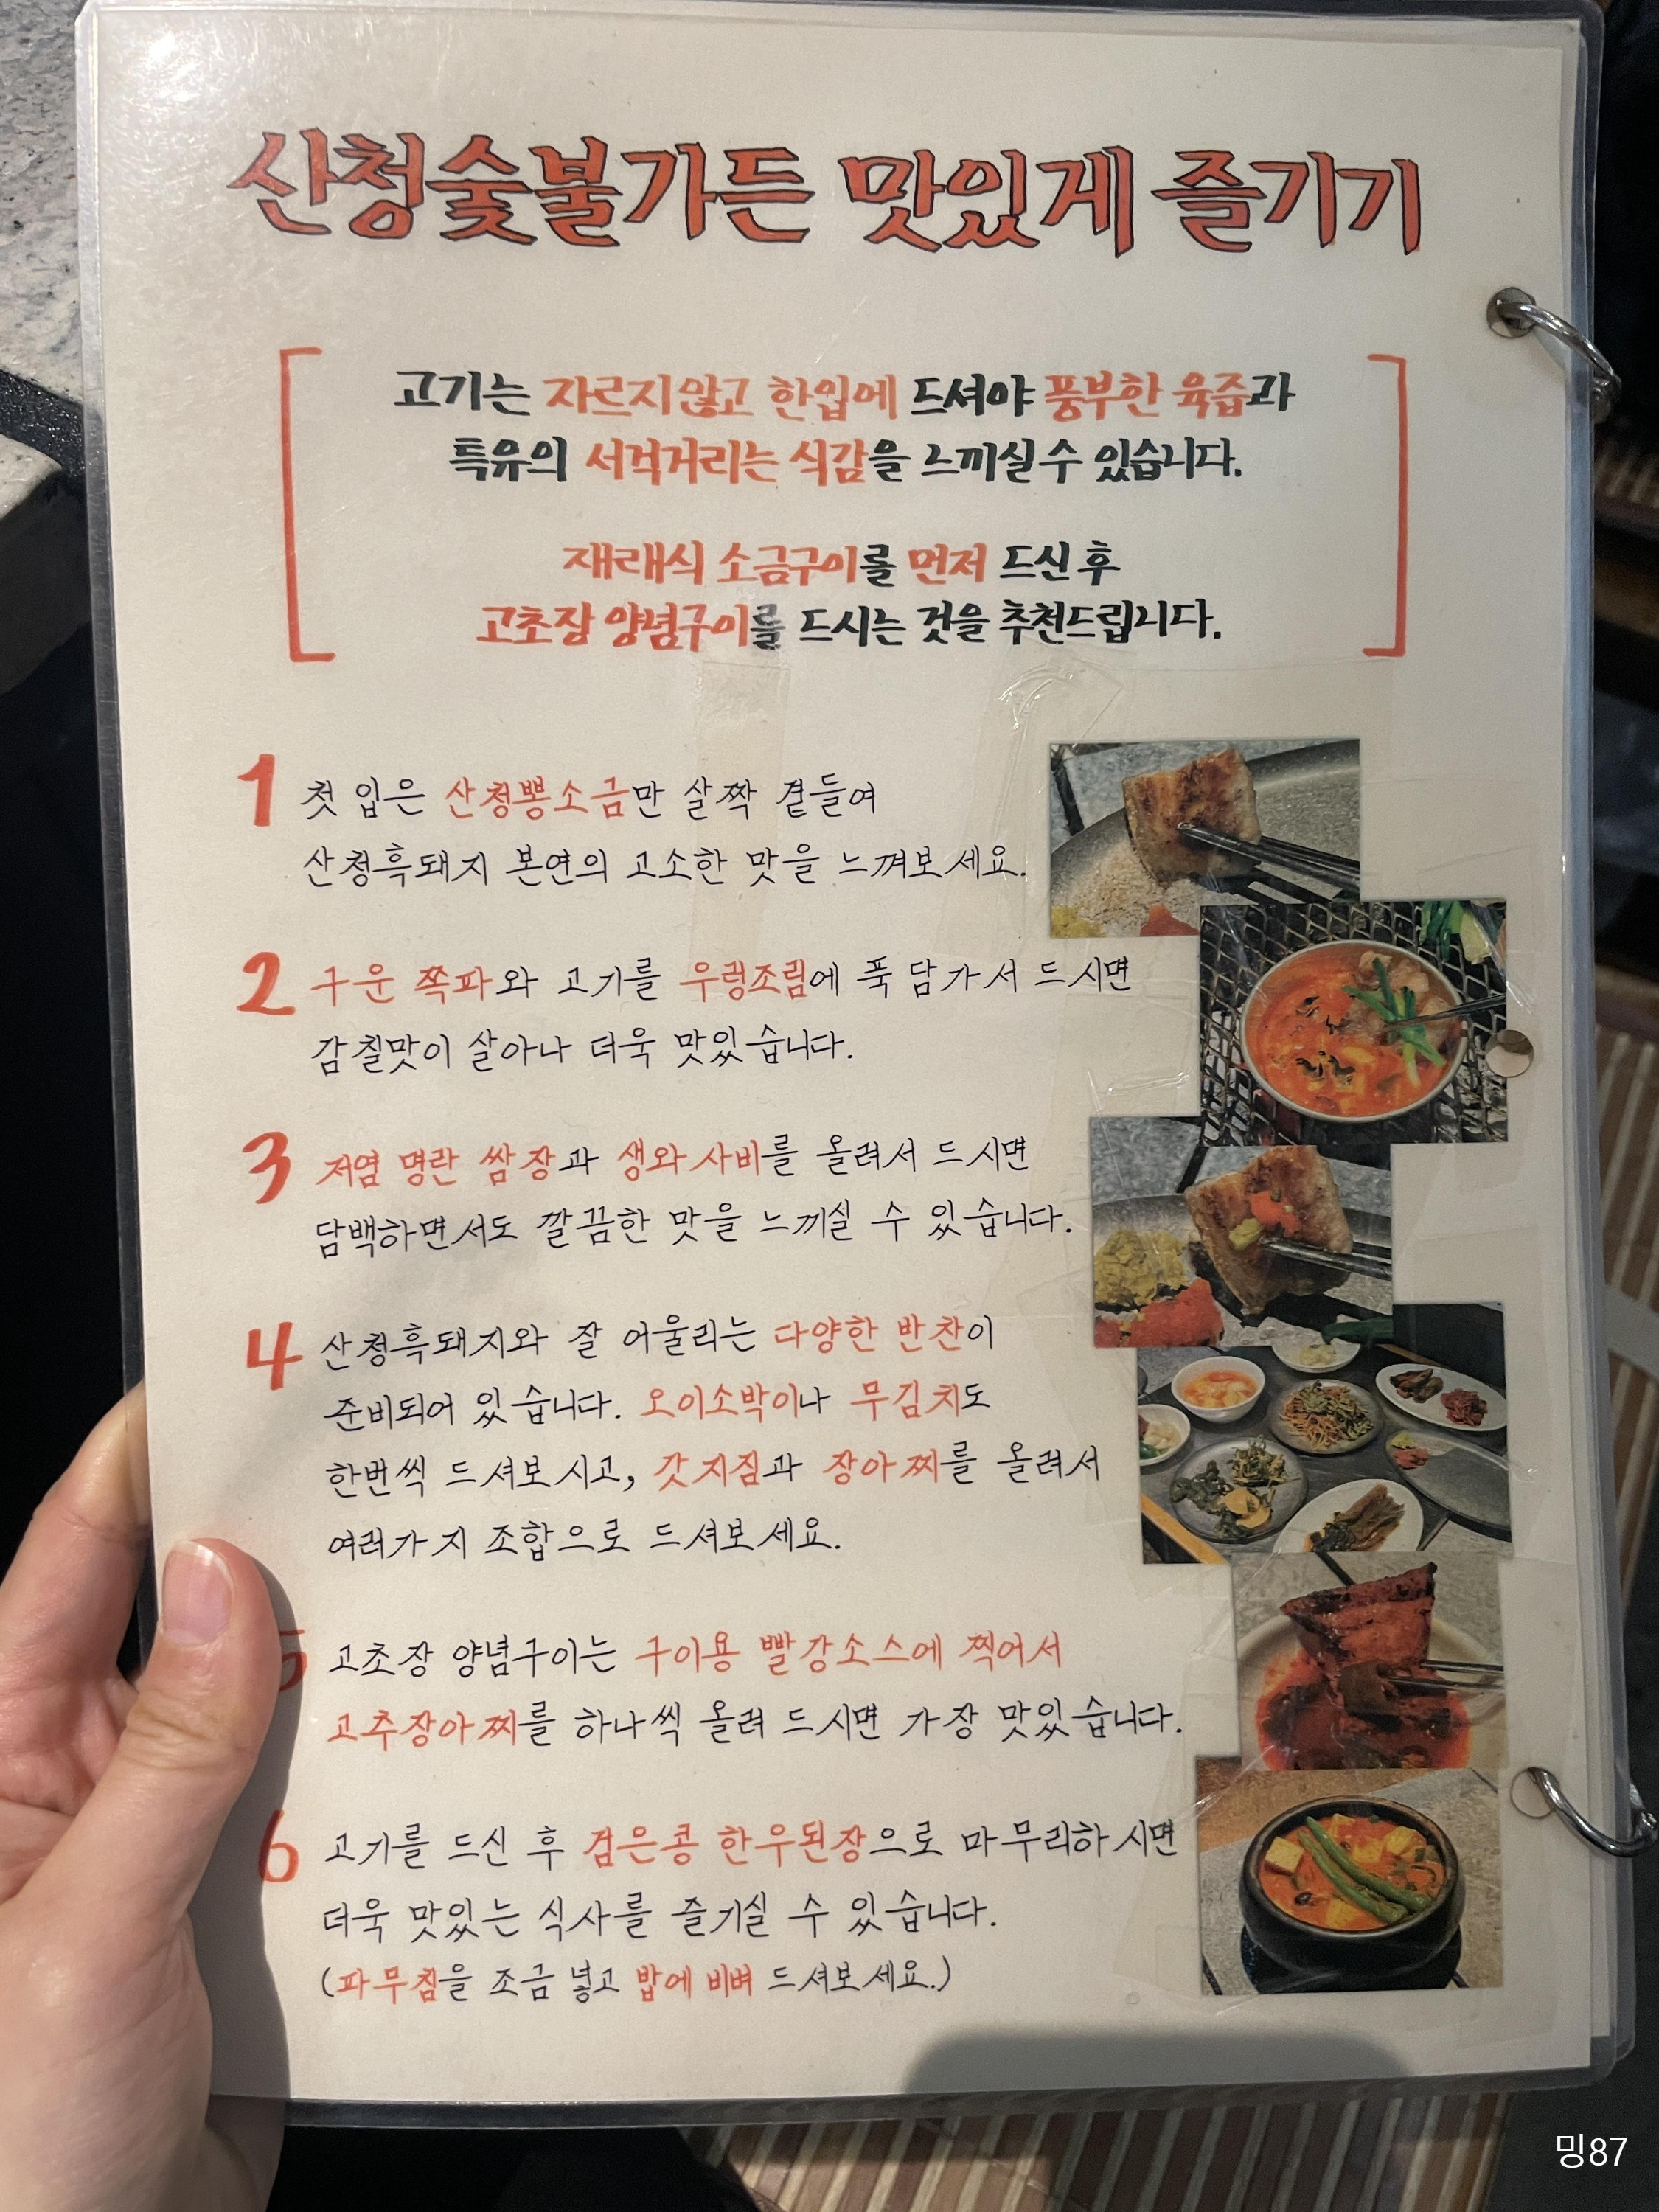 산청숯불가든 맛있게 즐기기
고기는 자르지않고 한입에 드셔야 풍부한 육즙과
특유의 서걱거리는 식감을 느끼실 수 있습니다.
재래식 소금구이를 먼저 드신 후
고초장 양념구이를 드시는 것을 추천드립니다.
1 첫 입은 산청뽕소금만 살짝 곁들여
산청흑돼지 본연의 고소한 맛을 느껴보세요.
2 구운 쪽파와 고기를 우렁조림에 푹 담가서 드시면
감칠맛이 살아나 더욱 맛있습니다.
3 저염 명란 쌈장과 생와사비를 올려서 드시면
담백하면서도 깔끔한 맛을 느끼실 수 있습니다.
4 산청흑돼지와 잘 어울리는 다양한 반찬이
준비되어 있습니다. 오이소박이나 무김치도
한번씩 드셔보시고, 갓지짐과 장아찌를 올려서
여러가지 조합으로 드셔보세요.
5 고초장 양념구이는 구이용 빨강소스에 찍어서
고추장아찌를 하나씩 올려 드시면 가장 맛있습니다.
6 고기를 드신 후 검은콩 한우된장으로 마무리하시면
더욱 맛있는 식사를 즐기실 수 있습니다.
(파무침을 조금 넣고 밥에 비벼 드셔보세요.)
밍87